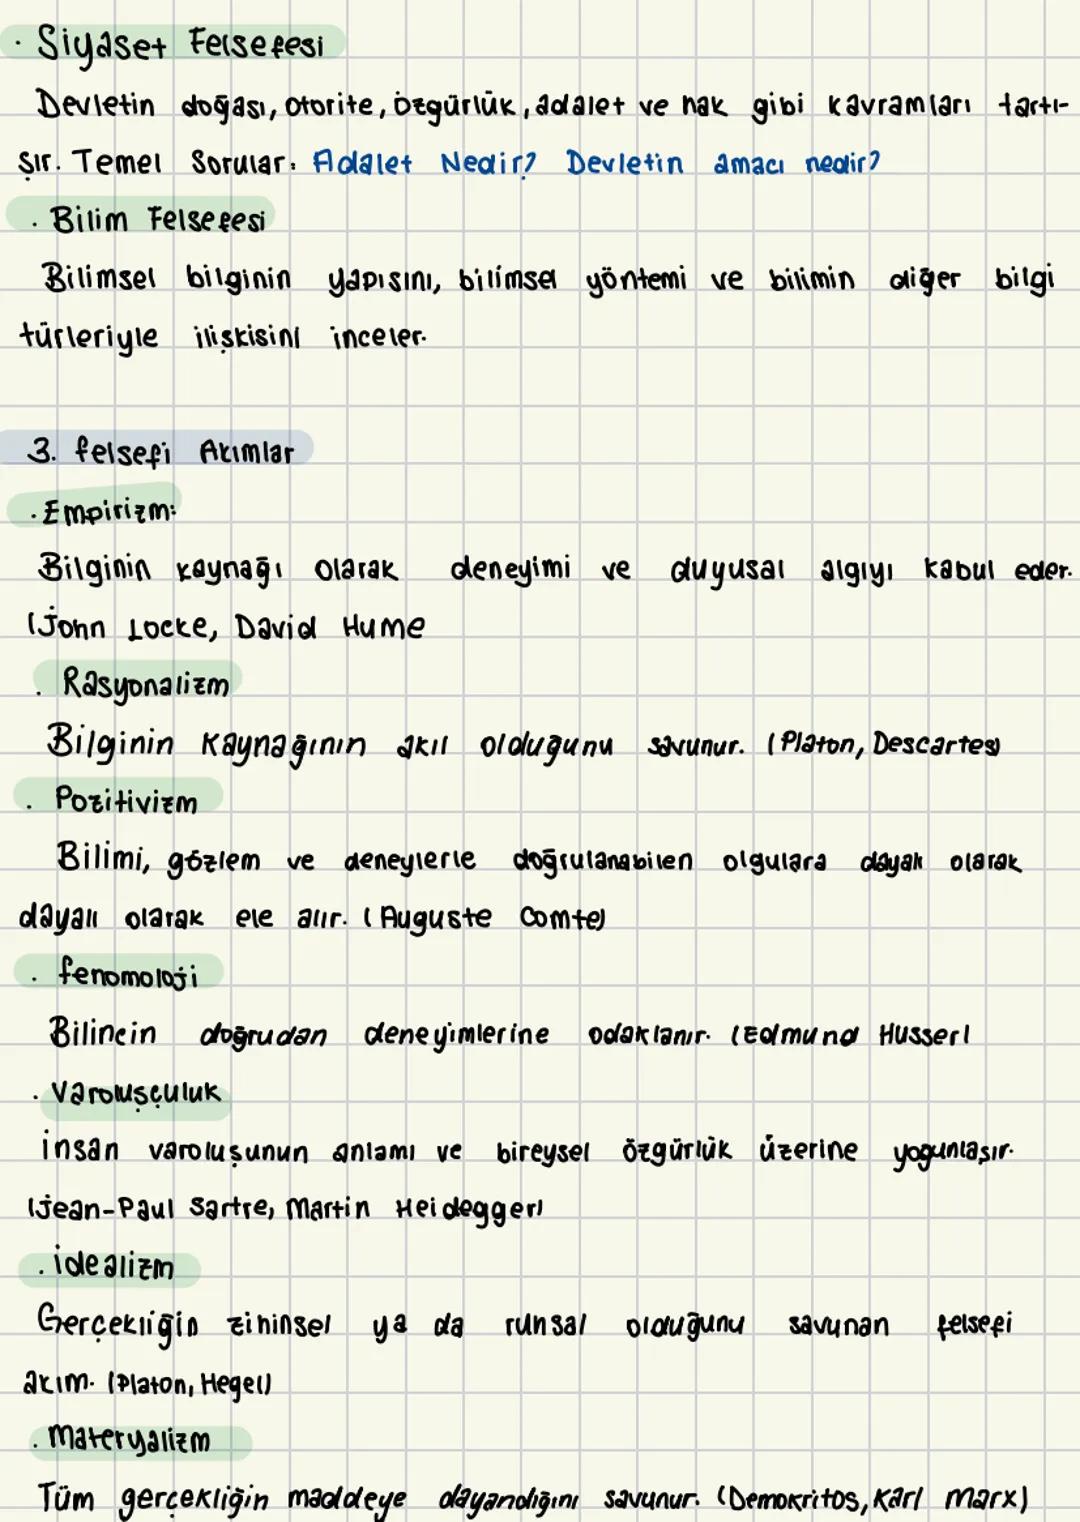 · Siyaset Felsefesi
Devletin doğası, otorite, özgürlük, adalet ve hak gibi kavramları tartı-
şır. Temel Sorular: Adalet Nedir? Devletin amacı nedir?
· Bilim Felsefesi
Bilimsel bilginin yapısını, bilimsel yöntemi ve bilimin diğer bilgi
türleriyle ilişkisini inceler.
3. felsefi Akımlar
· Empirizm:
Bilginin kaynağı olarak deneyimi ve duyusal algıyı kabul eder.
(John Locke, David Hume
· Rasyonalizm
Bilginin Kaynağının akıl olduğunu savunur. (Platon, Descartes)
· Pozitivizm
Bilimi, gözlem ve deneylerle doğrulanabilen olgulara dayalı olarak
dayalı olarak ele alır. (Auguste Comte)
· fenomoloji
Bilincin doğrudan deneyimlerine odaklanır. (Edmund Husserl
· Varoluşçuluk
insan varoluşunun anlamı ve bireysel özgürlük üzerine yogunlaşır.
(Jean-Paul Sartre, Martin Heidegger)
· idealizm
Gerçekliğin zihinsel ya da ruhsal olduğunu savunan felsefi
akım. (Platon, Hegel)
· Materyalizm
Tüm gerçekliğin maddeye dayandığını savunur. (Demokritos, Karl Marx)